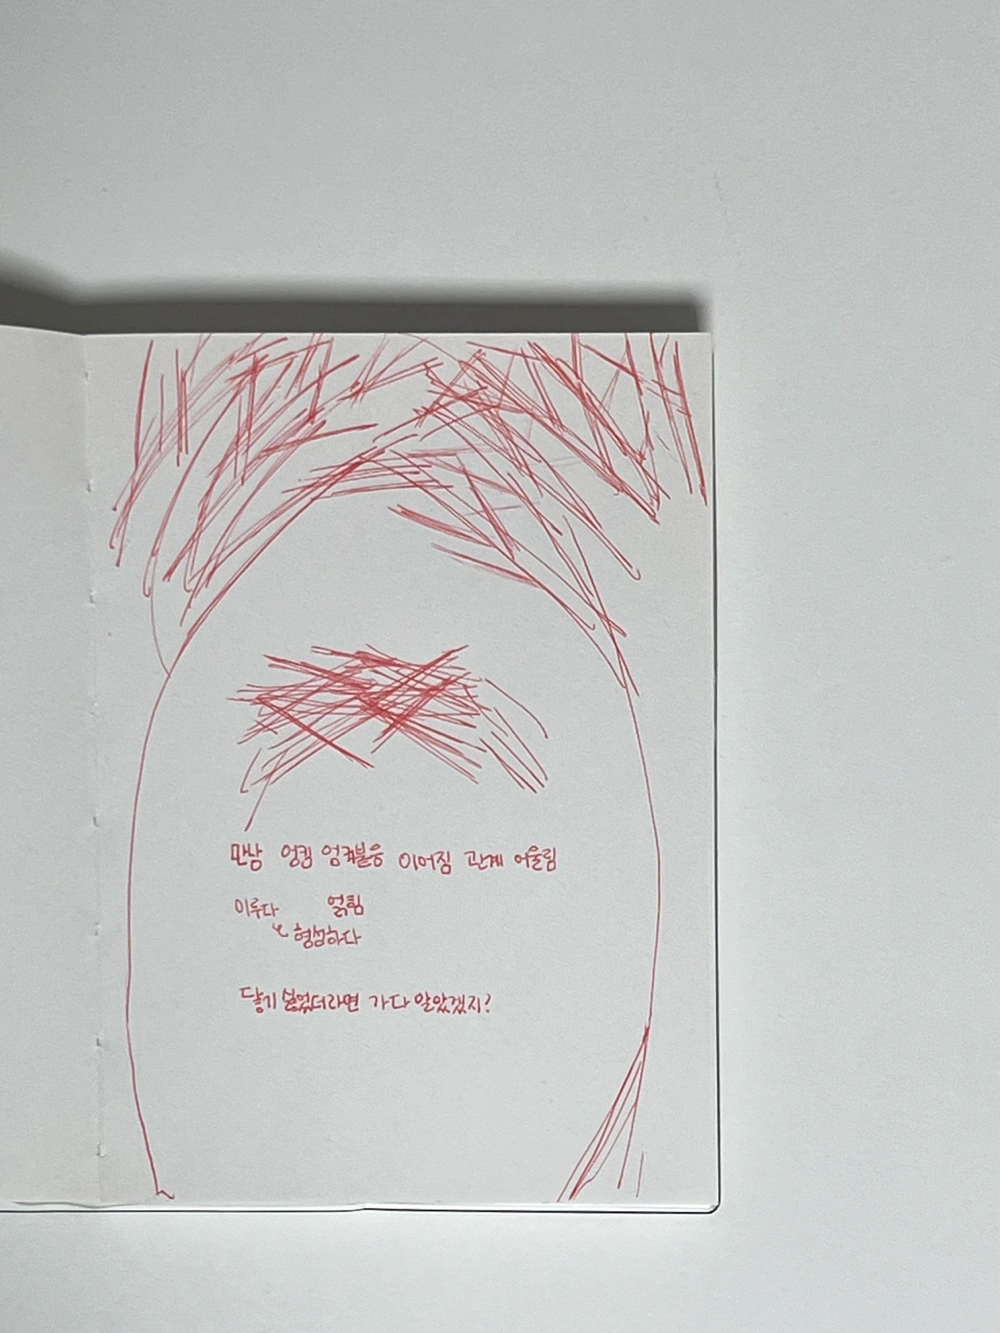 만남 엉킴 엉겨붙음 이어짐 관계 어울림
이루다 얽힘
형성하다
닿기 싫었더라면 가다 말았겠지?